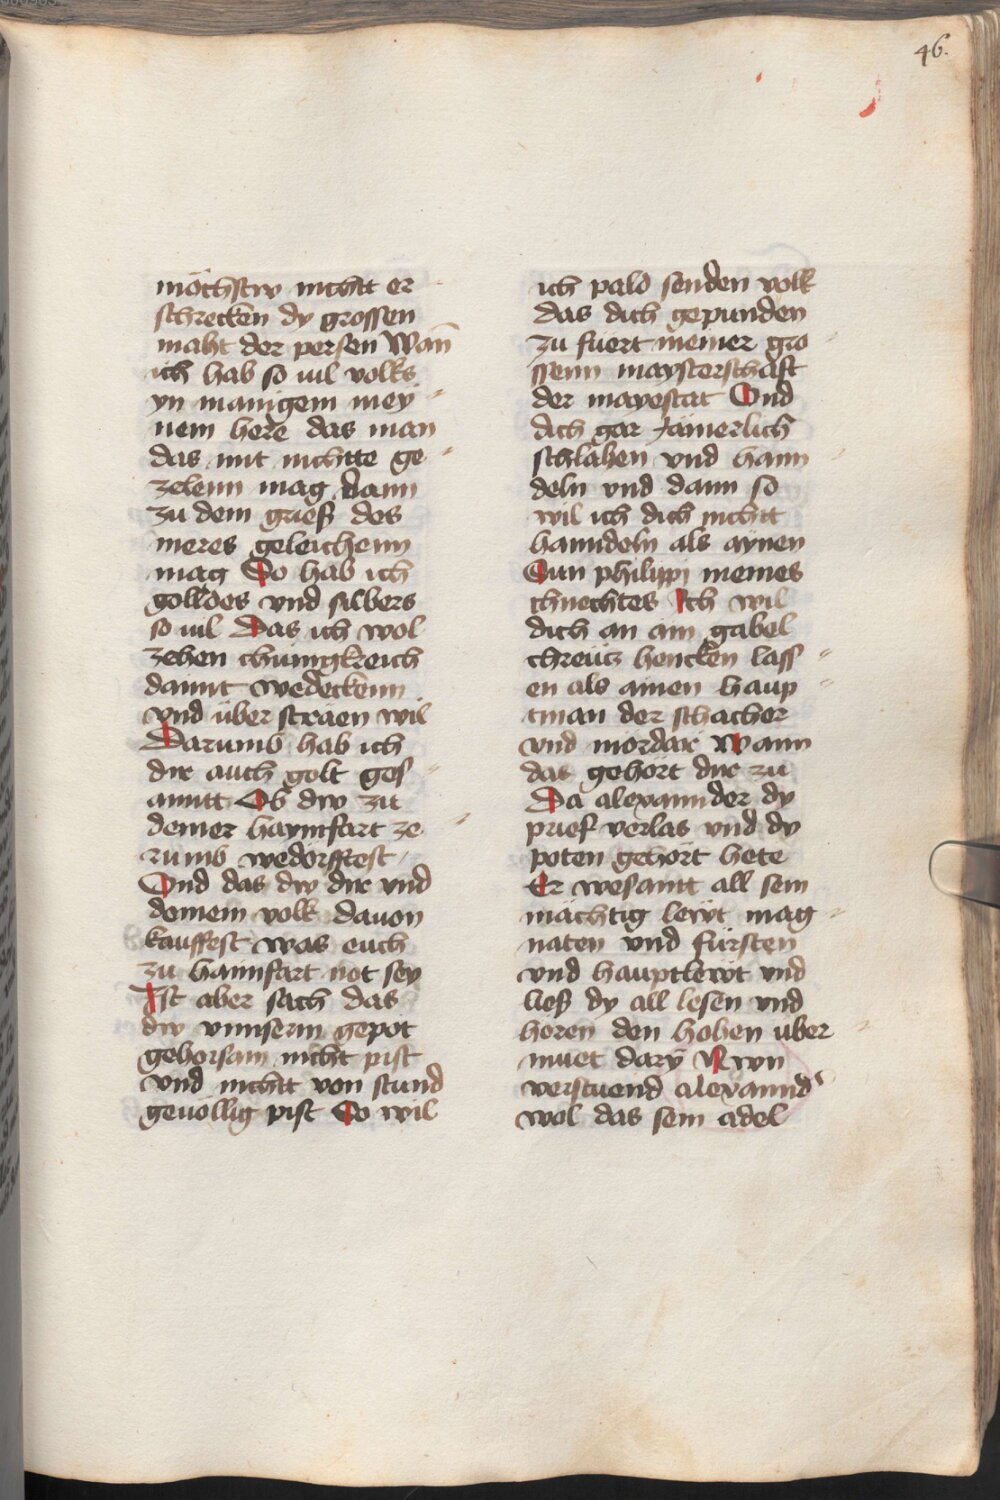 46.
möchstw nichtt er
schrecken dy grossen
maht der persen Wan̄
ich hab so uil volks
yn manigem mey
nem here das man
das mit nichtte ge
zelenn mag dann
zu dem grieß des
meres geleichenn
mag So hab ich
golldes vnd silbers
so uil Das ich wol
zehen chunigkreich
damit wedeckenn
vnd über sträen wil
Darumb hab ich
dir auch golt ges
anntt Ob dw zu
deiner haymfart ze
rumb wedorfftest
Vnd das dw dir vnd
deinem volk dauon
kauffest was euch
zu haimfart not sey
Ist aber sach das
dw vnnserm gepot
gehorsam nicht pist
vnd nichtt von stund
geuöllig pist So wil
ich pald senden volk
das dich gepunden
zu fuert meiner gro
ssenn maysterschaft
der mayestat Vnd
dich gar Jämerlich
schlahen vnd hann
deln vnd dann so
wil ich dich nichtt
hanndeln als aynen
Sun philippi meines
chnechtes Ich wil
dich an ain gabel
chreücz hencken lass
en als ainen haup
tman der schacher
vnd mördär Wann
das gehört dir zu
Da alexannder dy
prief verlas vnd dy
poten gehört hete
Er wesamt all sein
mächtig lewt mag
naten vnd fürsten
vnd hauptlewt vnd
ließ dy all lesen vnd
horen den hohen über
muet dary Nwn
verstuend alexannd'
wol das sein adel